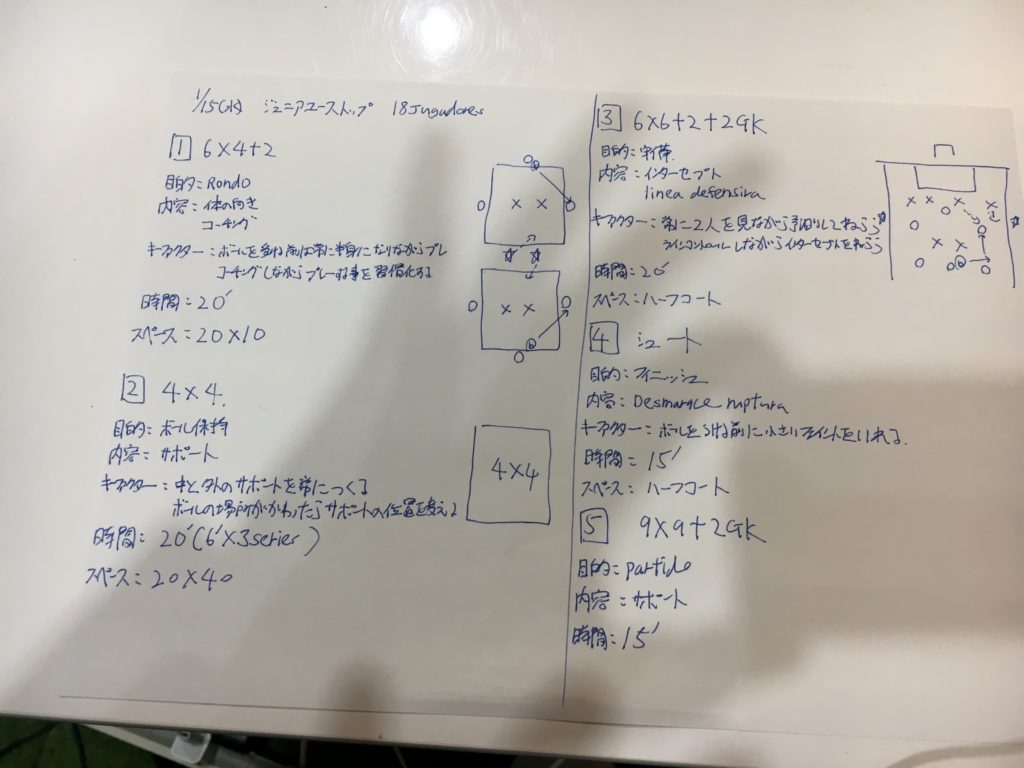 1/15(水) ジュニアユーストップ 18Jugadores
1 6×4+2
目的：Rondo
内容：体の向き
コーチング
キーファクター：ボールを受ける前は常に半身になりながらプレー
コーチングしながらプレーする事を習慣化する
時間：20′
スペース：20×10
2 4×4.
目的：ボール保持
内容：サポート
キーファクター：中と外のサポートを常につくる
ボールの場所がかわったらサポートの位置を変える
4×4
時間：20′(6′×3serier)
スペース：20×40
3 6×6+2+2GK
目的：守備.
内容：インターセプト
linea defensiva
キーファクター：常に2人を見ながら予測してねらう
ラインコントロールしながらインターセプトをねらう
時間：20′
スペース：ハーフコート
4 シュート
目的：フィニッシュ
内容：Desmarque ruptura
キーファクター：ボールをうける前に小さいフェイントをいれる.
時間：15′
スペース：ハーフコート
5 9×9+2GK
目的：partido
内容：サポート
時間：15′